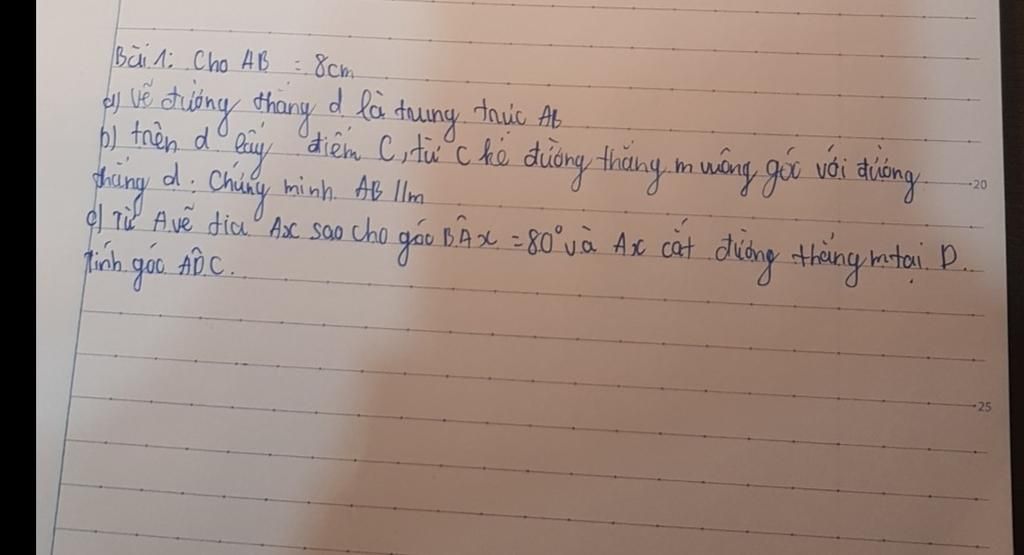 Bài 1: Cho AB = 8cm
a) Vẽ đường thẳng d là trung trực AB
b) trên d lấy điểm C, từ C kẻ đường thẳng m vuông góc với đường
thẳng d. Chứng minh AB // m
c) Từ A vẽ tia Ax sao cho góc BÂx = 80° và Ax cắt đường thẳng m tại D.
Tính góc AD̂C.
20
25